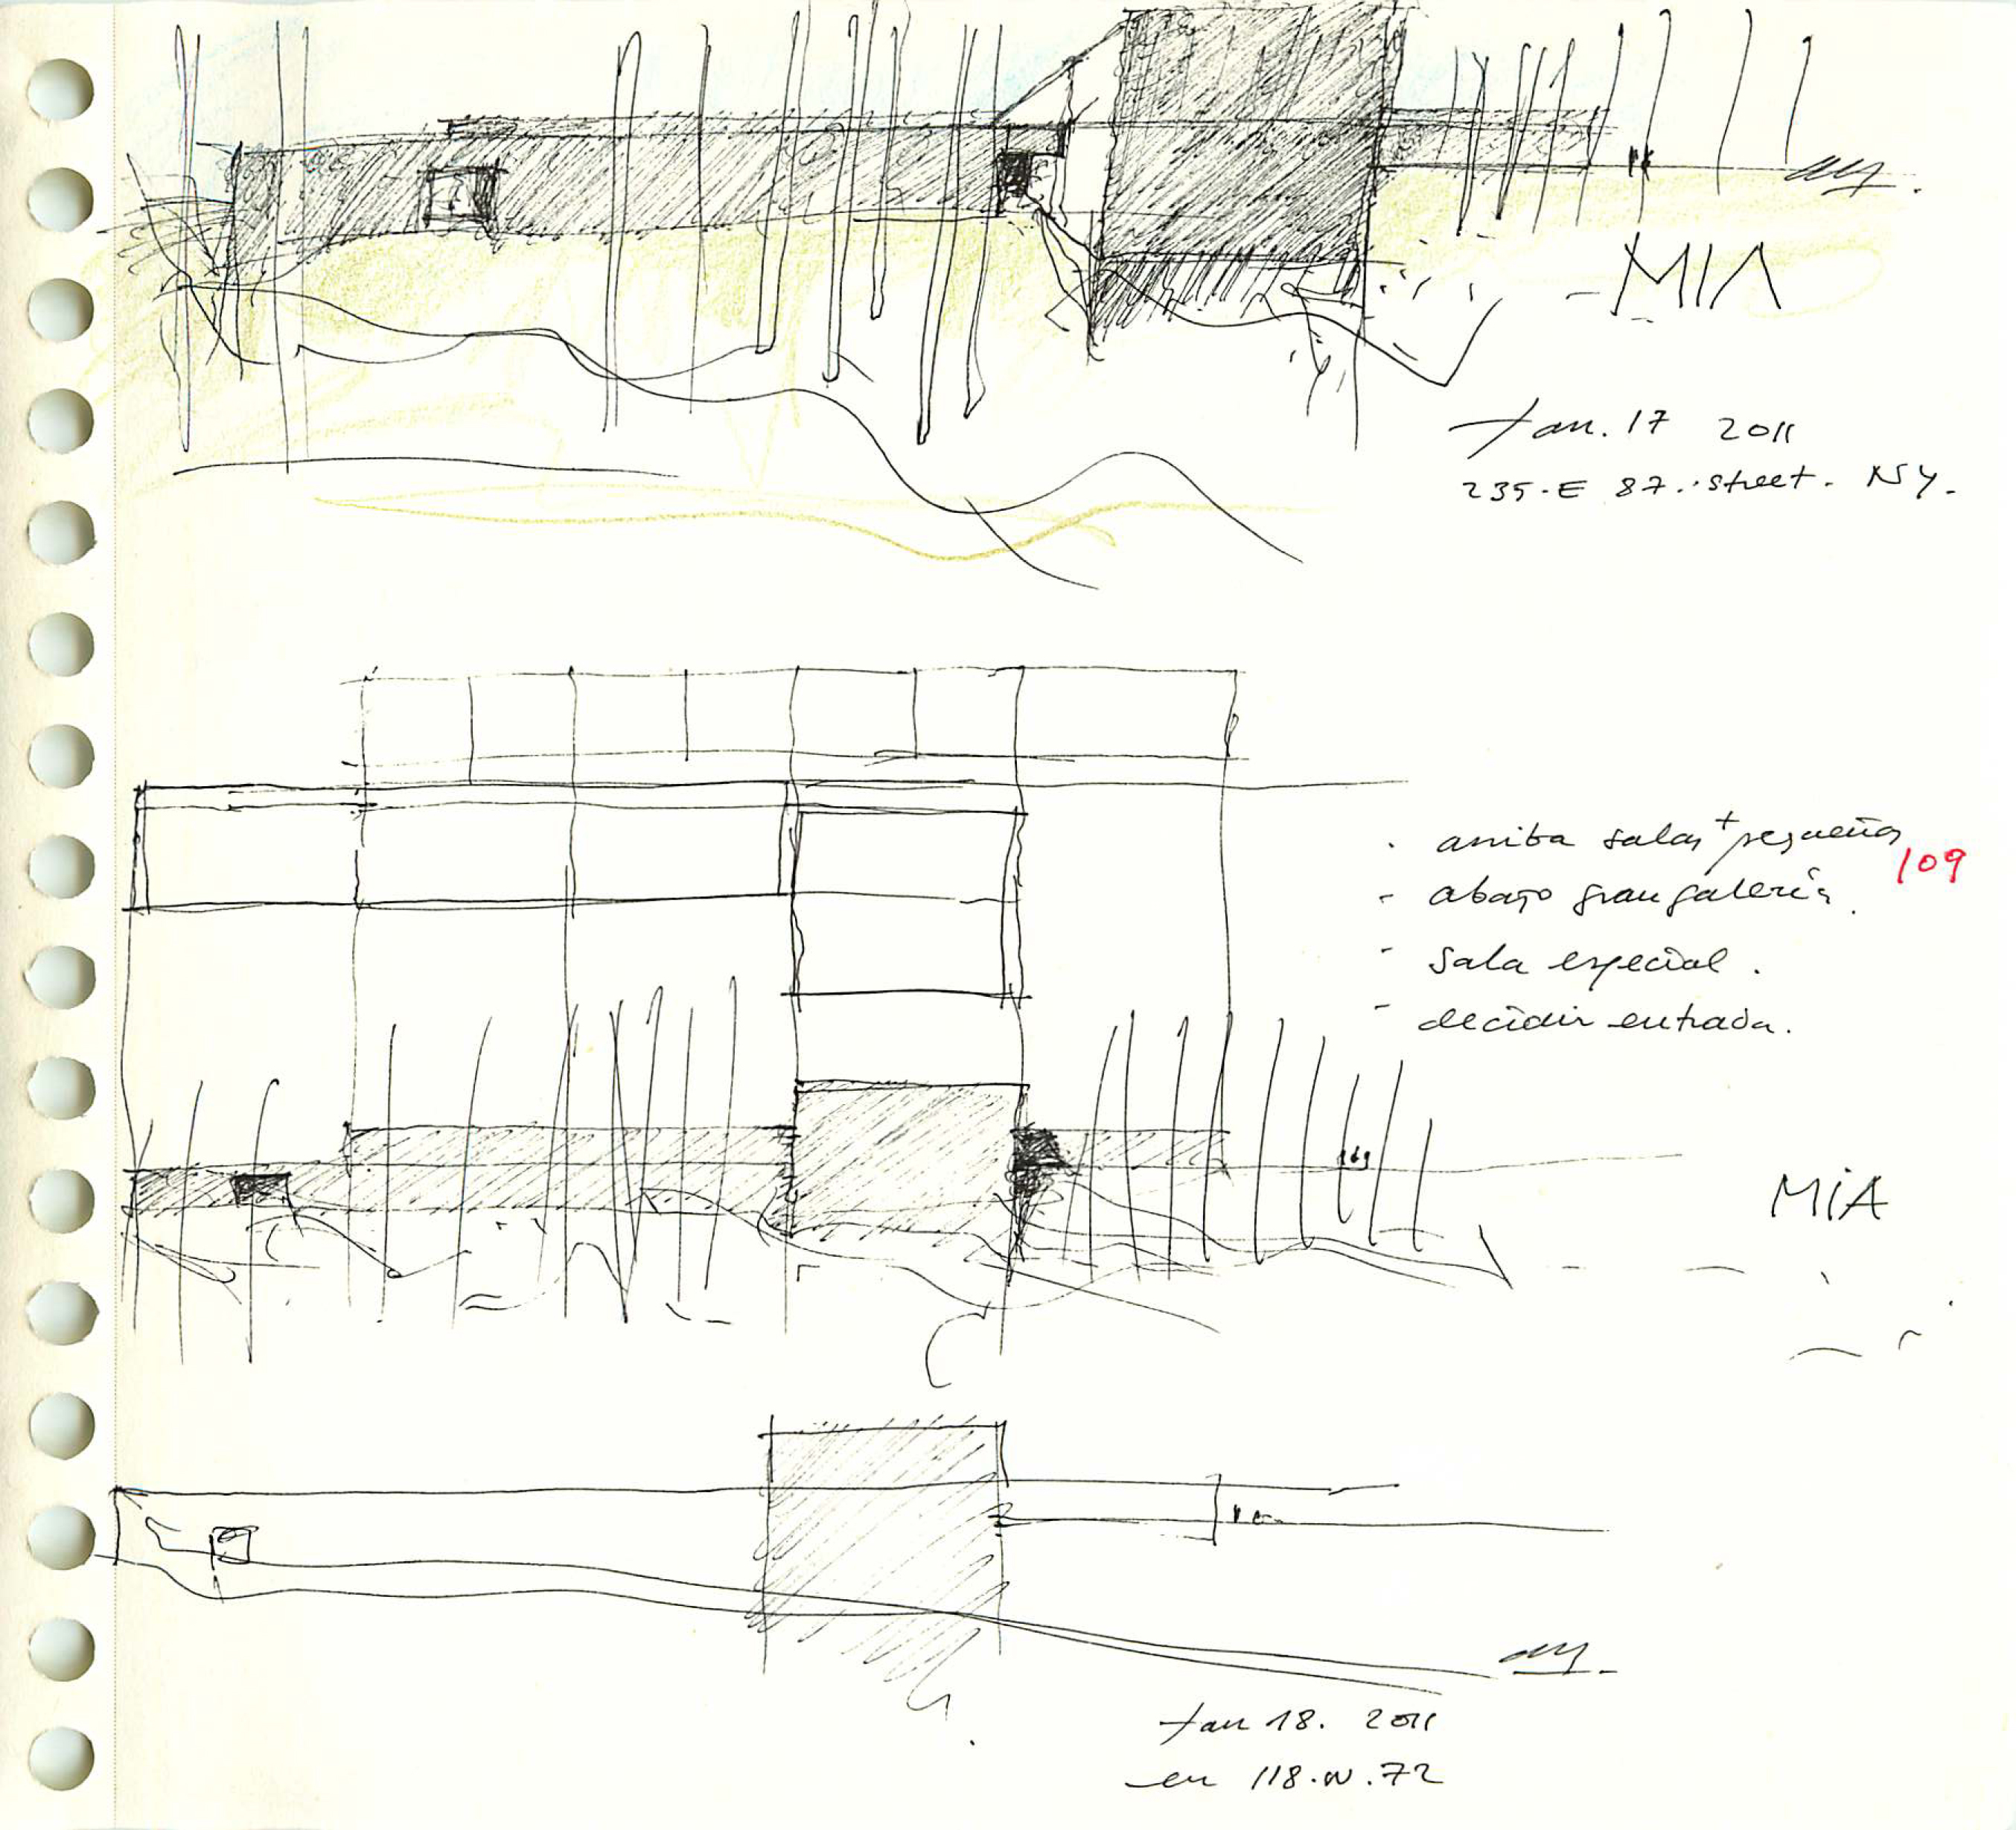 MIA
Jan. 17 2011
235.E 87. street. NY.
· arriba salas + pequeñas
109
- abajo gran galería.
- sala especial.
- decidir entrada.
MiA
Jan 18. 2011
en 118.W.72